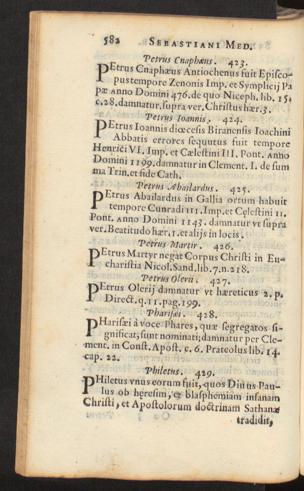 582 SEBASTIANI MED.
Petrus Cnaphæus. 423.
PEtrus Cnaphæus Antiochenus fuit Episco-
pus tempore Zenonis Imp. et Symplicij Pa
pæ anno Domini 476. de quo Niceph, lib. 15.
c.28. damnatur, supra ver, Christus hær. 3.
Petrus Ioannis, 424.
PEtrus Ioannis diœcesis Biranensis Ioachini
Abbatis errores sequutus fuit tempore
Henrici VI. Imp. et Cælestini III. Pont. Anno
Domini 1199. damnatur in Clement. I. de sum
ma Trin, et fide Cath.
Petrus Abailardus. 425.
PEtrus Abailardus in Gallia ortum habuit
tempore Cunradi III. Imp. et Cęlestini II.
Pont. Anno Domini 1143. damnatur vt supra
ver. Beatitudo hær. 1. et alijs in locis.
Petrus Martir. 426.
PEtrus Martyr negat Corpus Christi in Eu-
charistia Nicol. Sand. lib. 7. n. 218.
Petrus Olerij. 427.
PEtrus Olerij damnatur vt hæreticus 2. p.
Direct. q. 11. pag. 199.
Pharisæi. 428.
PHarisæi à voce Phares, quæ segregatos si-
gnificat, sunt nominati; damnatur per Cle-
ment. in Const. Apost. c. 6. Prateolus lib. 14.
cap. 22.
Philetus. 429.
PHiletus vnus eorum fuit, quos Diuus Pau-
lus ob heresim, et blasphemiam insanam
Christi, et Apostolorum doctrinam Sathanæ
tradidit,